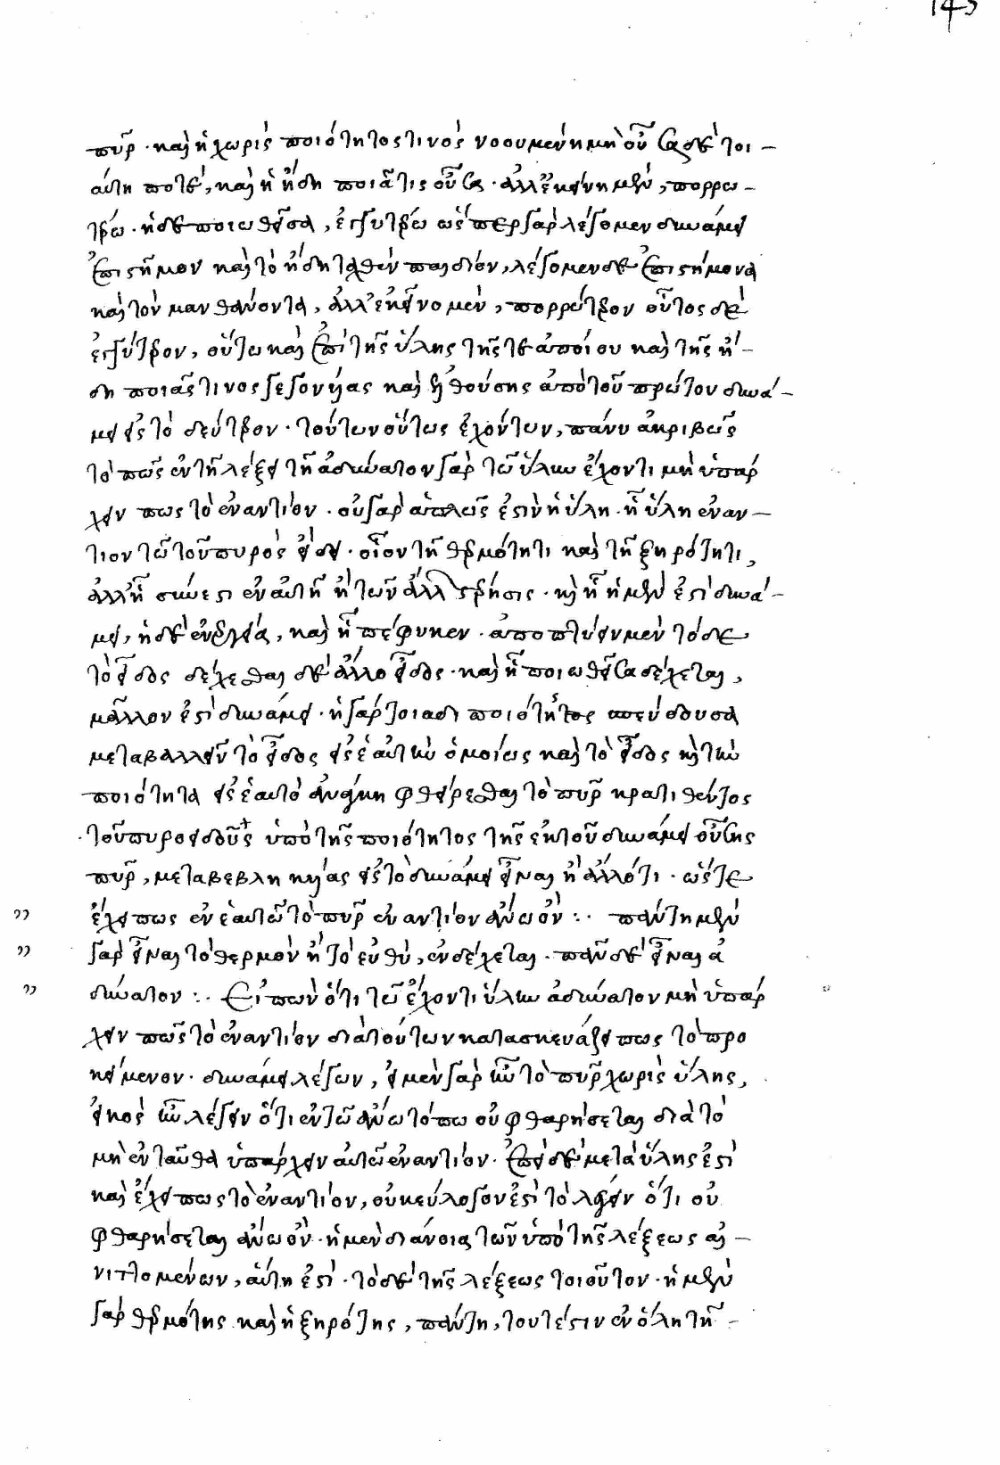 143
πῦρ · καὶ ἡ χωρὶς ποιότητός τινος νοουμένη μὴ οὖσα δὲ τοι-
αύτη ποτέ, καὶ ἡ ἤδη ποιά τις οὖσα · ἀλλ' ἐκείνη μὲν, πορρω-
τέρω · ἡ δὲ ποιωθεῖσα, ἐγγυτέρω ὥσπερ γὰρ λέγομεν δυνάμει
ἐπιστῆμον καὶ τὸ ἤδη ταχθὲν παιδίον, λέγομεν δὲ ἐπιστήμονα
καὶ τὸν μανθάνοντα, ἀλλ' ἐκεῖνο μὲν, πορρώτερον οὗτος δὲ
ἐγγύτερον, οὕτω καὶ ἐπὶ τῆς ὕλης τῆς τε ἀποίου καὶ τῆς ἤ-
δη ποιᾶς τινος γεγονυίας καὶ ἐλθούσης ἀπὸ τοῦ πρώτου δυνά-
μει εἰς τὸ δεύτερον · τούτων οὕτως ἐχόντων, πάνυ ἀκριβῶς
τὸ πῶς ἐν τῆ λέξει τῆ ἀδύνατον γὰρ τῶ ὕλην ἔχοντι μὴ ὑπάρ
χειν πως τὸ ἐναντίον · οὐ γὰρ ἁπλῶς ἐστὶν ἡ ὕλη · ἢ ὕλη ἐναν-
τίον τῶ τοῦ πυρὸς εἴδει · οἷον τῆ θερμότητι καὶ τῆ ξηρότητι,
ἀλλ' ἧ σύνεστιν ἐν αὐτῆ ἡ τῶν ἄλλων στέρησις · κὴ ἧ ἡ μὲν ἐστὶ δυνά-
μει, ἡ δὲ ἐνεργεία, καὶ ἧ πέφυκεν · ἀποπτύειν μὲν τόδε
τὸ εἶδος δέχεσθαι δὲ ἄλλο εἶδος · καὶ ἧ ποιωθεῖσα δέχεται,
μᾶλλον ἐστὶ δυνάμει · ἡ γὰρ τοιάδι ποιότητος σπεύδουσα
μεταβάλλειν τὸ εἶδος εἰς ἑαυτὴν ὁμοίως καὶ τὸ εἶδος κὴ τὴν
ποιότητα εἰς ἑαυτὸ ἀνάγκη φθείρεσθαι τὸ πῦρ κρατηθέντος
τοῦ πυροειδοῦς ὑπὸ τῆς ποιότητος τῆς ἐκ τοῦ δυνάμει οὔσης
πῦρ, μεταβεβληκυίας εἰς τὸ δυνάμει εἶναι ἢ ἄλλό τι · ὥστε
ἔχει πως ἐν ἑαυτῶ τὸ πῦρ ἐναντίον ἄνω ὄν :· πάντη μὲν
γὰρ εἶναι τὸ θερμὸν ἢ τὸ εὐθὺ, ἐνδέχεται · πᾶν δὲ εἶναι ἀ
δύνατον :· Εἰπὼν ὅτι τῶ ἔχοντι ὕλην ἀδύνατον μὴ ὑπάρ
χειν πῶς τὸ ἐναντίον διὰ τούτων κατασκευάζει πως τὸ προ
κείμενον · δυνάμει λέγων, εἰ μὲν γὰρ ἦν τὸ πῦρ χωρὶς ὕλης,
εἰκὸς ἦν λέγειν ὅτι ἐν τῶ ἄνω τόπω οὐ φθαρήσεται διὰ τὸ
μὴ ἐνταῦθα ὑπάρχειν αὐτῶ ἐναντίον · ἐπεὶ δὲ μετὰ ὕλης ἐστὶ
καὶ ἔχει πως τὸ ἐναντίον, οὐκ εὔλογον ἐστὶ τὸ λέγειν ὅτι οὐ
φθαρήσεται ἄνω ὄν · ἡ μὲν διάνοια τῶν ὑπὸ τῆς λέξεως αἰ-
νιττομένων, αὕτη ἐστὶ · τὸ δὲ τῆς λέξεως τοιοῦτον · ἡ μὲν
γὰρ θερμότης καὶ ἡ ξηρότης, πάντη, τουτέστιν ἐν ὅλη τῆ-